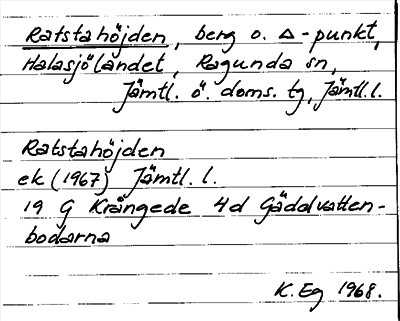 Ratstahöjden, berg o. △-punkt,
Halasjölandet, Ragunda sn,
Jämtl. ö. doms. tg, Jämtl. l.
Ratstahöjden
ek (1967) Jämtl. l.
19 G Krångede 4d Gäddvatten-
bodarna
K. Eg 1968.